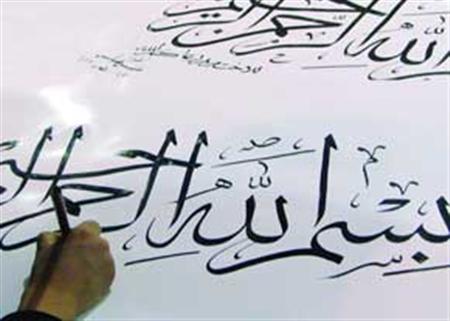 الله الرحمن الرحيم
بسم الله الرحمن